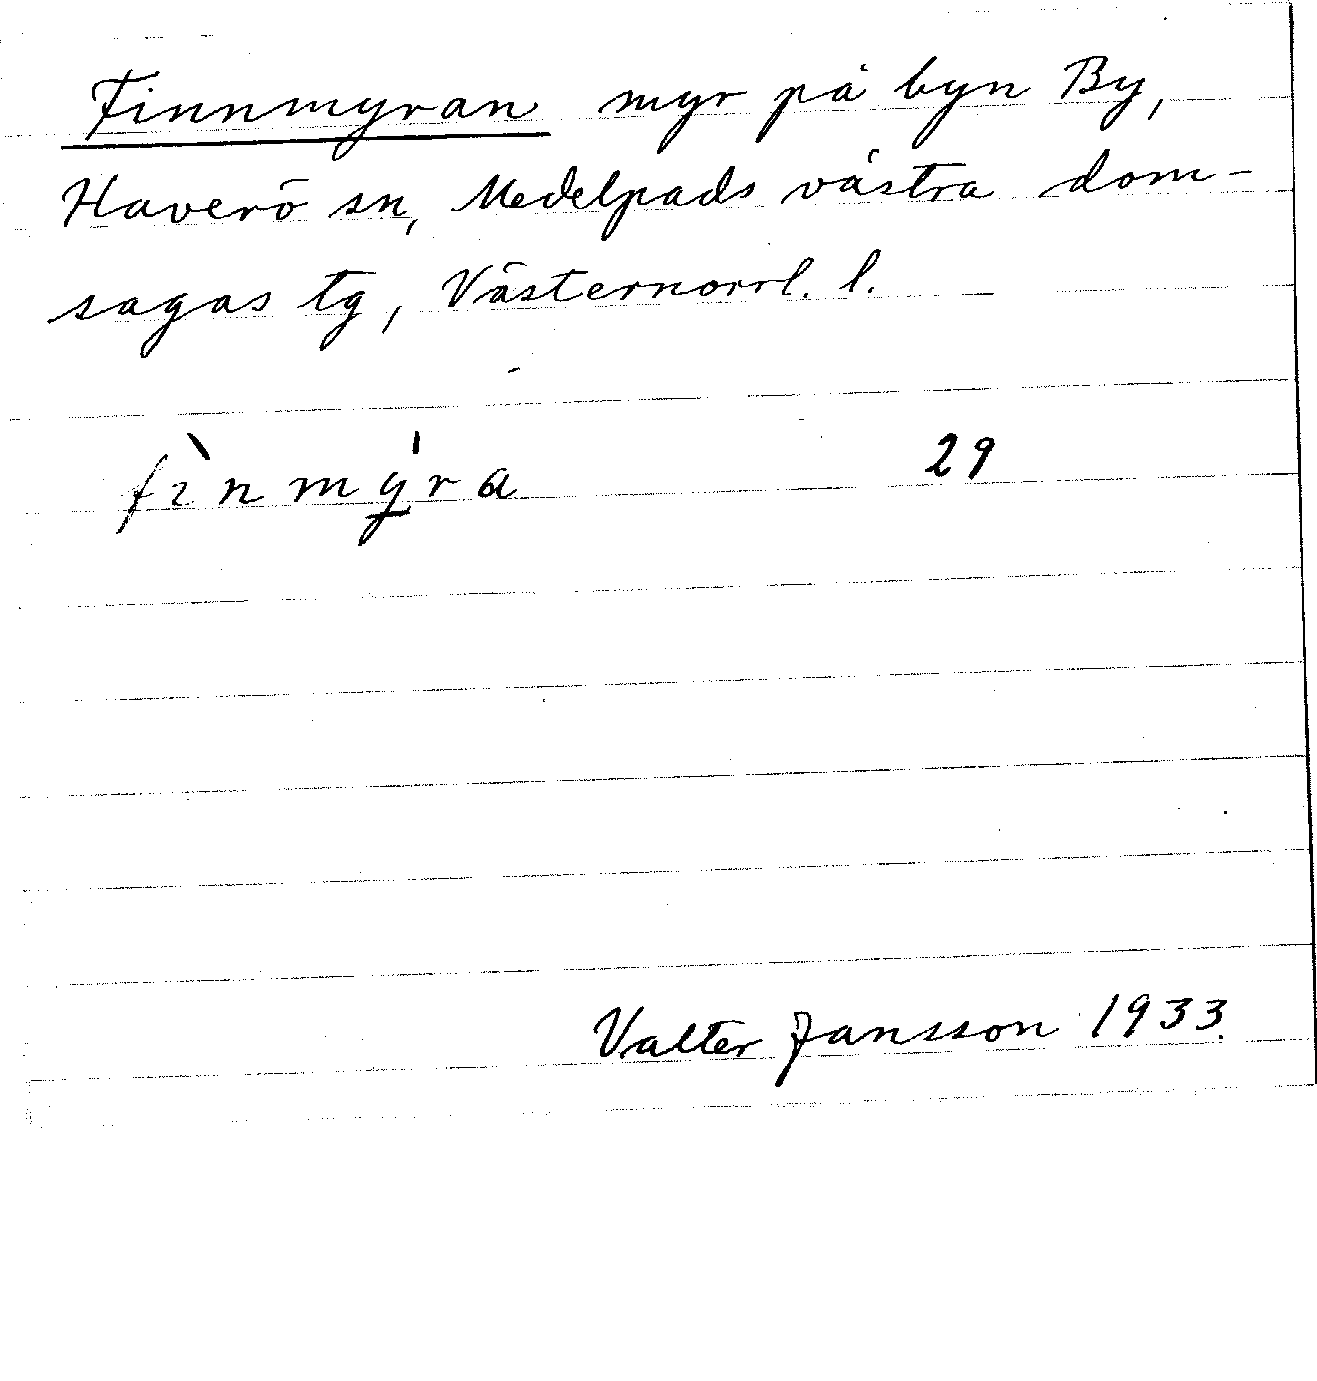 Finnmyran myr på byn By,
Haverö sn, Medelpads västra dom-
sagas tg, Västernorrl. l.
fìnmý̠ra 29
Valter Jansson 1933.